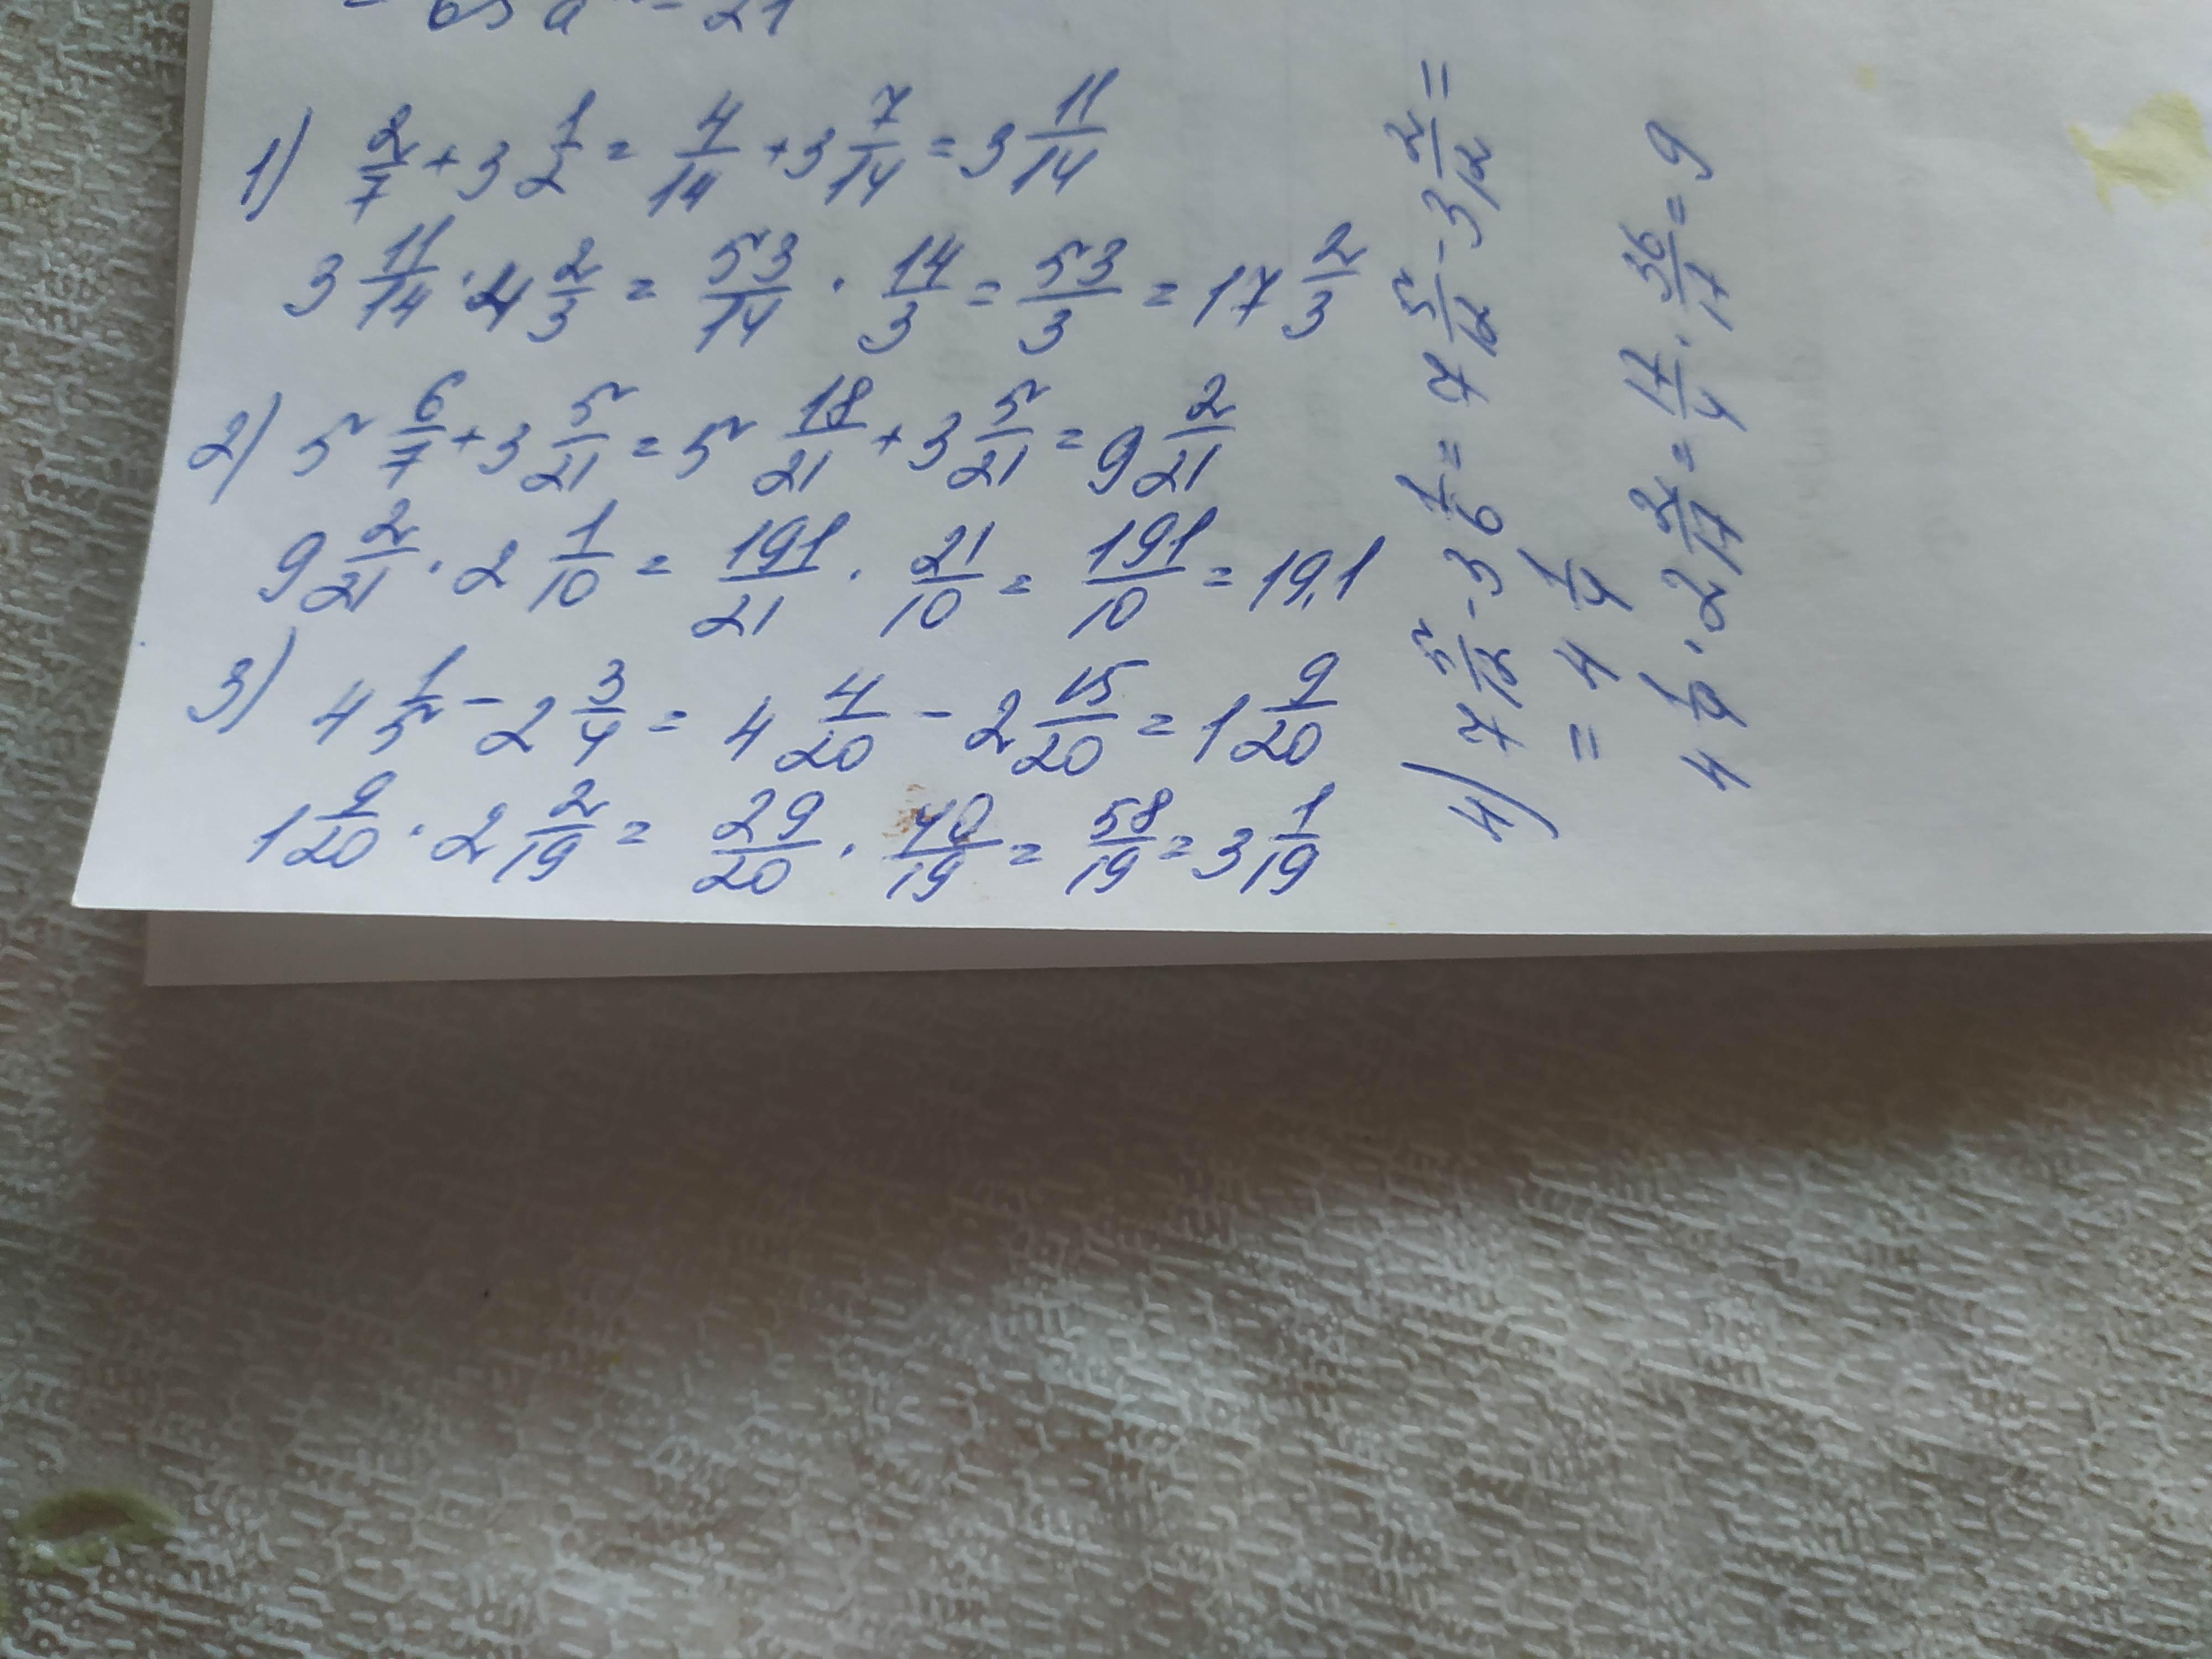 21
1) 2/7 + 3 1/2 = 4/14 + 3 7/14 = 3 11/14
3 11/14 · 4 2/3 = 53/14 · 14/3 = 53/3 = 17 2/3
2) 5 6/7 + 3 5/21 = 5 18/21 + 3 5/21 = 9 2/21
9 2/21 · 2 1/10 = 191/21 · 21/10 = 191/10 = 19,1
3) 4 1/5 - 2 3/4 = 4 4/20 - 2 15/20 = 1 9/20
1 9/20 · 2 2/19 = 29/20 · 40/19 = 58/19 = 3 1/19
4) 7 5/12 - 3 1/6 = 7 5/12 - 3 2/12 =
= 4 1/4
4 1/4 · 2 2/17 = 17/4 · 36/17 = 9